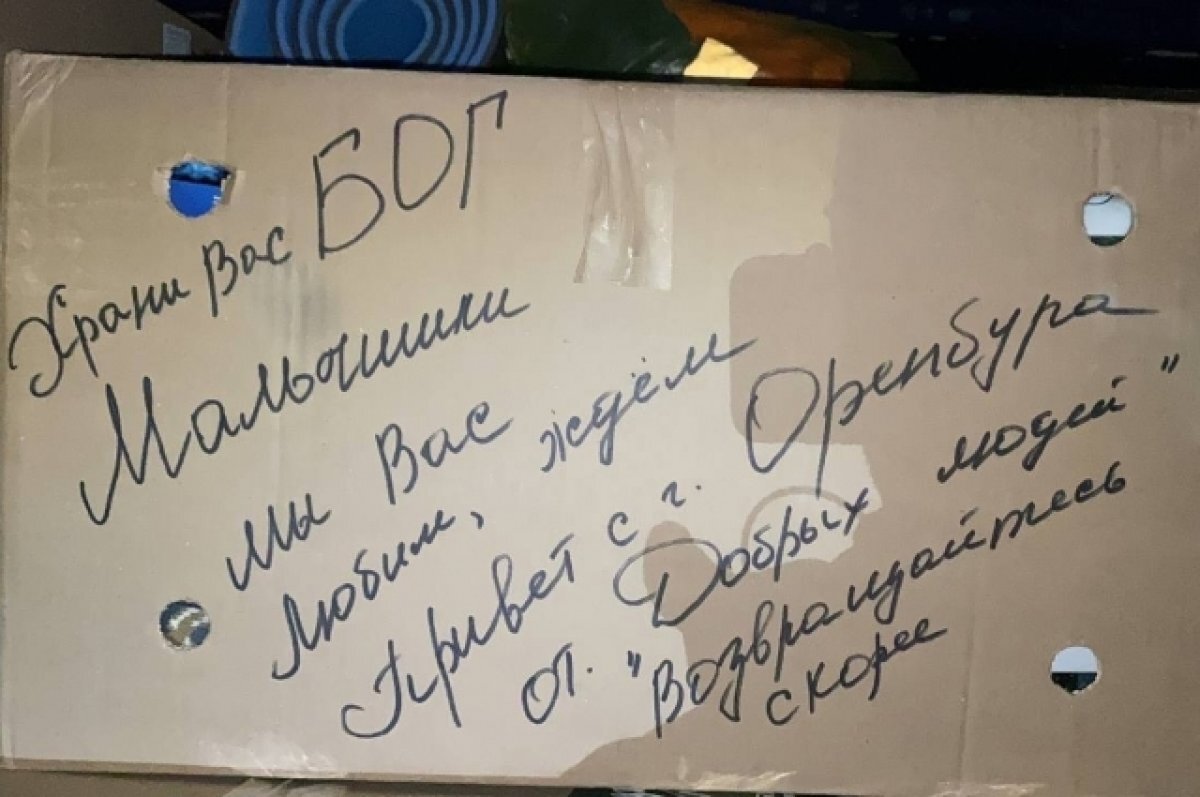 Храни Вас БОГ
Мальчишки
мы Вас
Любим, ждём
Привет с г. Оренбурга
от. "Добрых людей"
Возвращайтесь
скорее